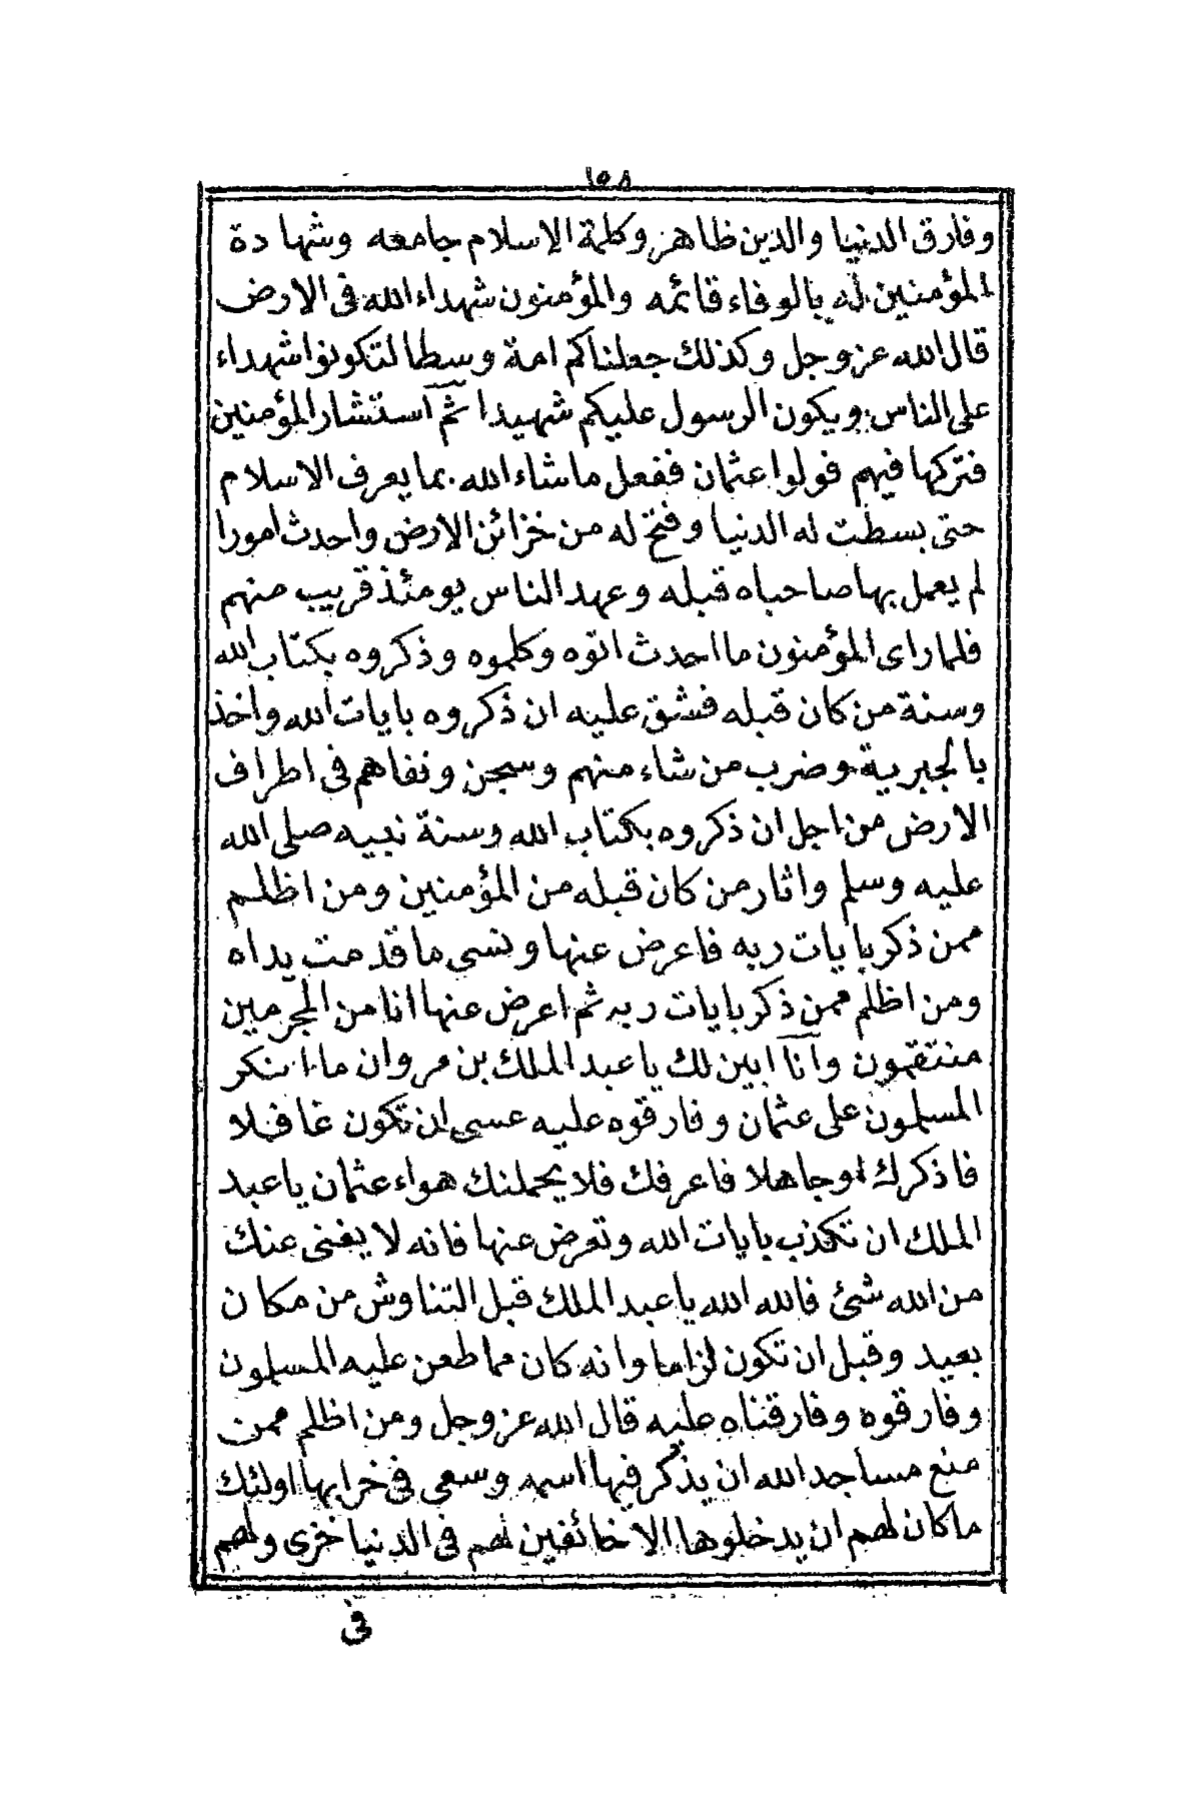 ١٥٨
وفارق الدنيا والدين ظاهر وكلمة الاسلام جامعه وشهادة
المؤمنين له بالوفاء قائمه والمؤمنون شهداء الله فى الارض
قال الله عز وجل وكذلك جعلناكم امة وسطا لتكونوا شهداء
على الناس ويكون الرسول عليكم شهيدا ثم استشار المؤمنين
فتركها فيهم فولوا عثمان ففعل ما شاء الله بما يعرف الاسلام
حتى بسطت له الدنيا وفتح له من خزائن الارض واحدث امورا
لم يعمل بها صاحباه قبله وعهد الناس يومئذ قريب منهم
فلما راى المؤمنون ما احدث اتوه وكلموه وذكروه بكتاب الله
وسنة من كان قبله فشق عليه ان ذكروه بايات الله واخذ
بالجبرية وضرب من شاء منهم وسجن ونفاهم فى اطراف
الارض من اجل ان ذكروه بكتاب الله وسنة نبيه صلى الله
عليه وسلم واثار من كان قبله من المؤمنين ومن اظلم
ممن ذكر بايات ربه فاعرض عنها ونسى ما قدمت يداه
ومن اظلم ممن ذكر بايات ربه ثم اعرض عنها انا من المجرمين
منتقمون وآنآ ابين لك يا عبد الملك بن مروان ما انكر
المسلمون على عثمان وفارقوه عليه عسى ان تكون غافلا
فاذكرك اوجاهلا فاعرفك فلا يحملنك هواء عثمان يا عبد
الملك ان تكذب بايات الله وتعرض عنها فانه لا يغنى عنك
من الله شئ فالله الله يا عبد الملك قبل التناوش من مكان
بعيد وقبل ان تكون لزاما وانه كان مما طعن عليه المسلمون
وفارقوه وفارقناه عليه قال الله عز وجل ومن اظلم ممن
منع مساجد الله ان يذكر فيها اسمه وسعى فى خرابها اولئك
ما كان لهم ان يدخلوها الا خائفين لهم فى الدنيا خزى ولهم
فى